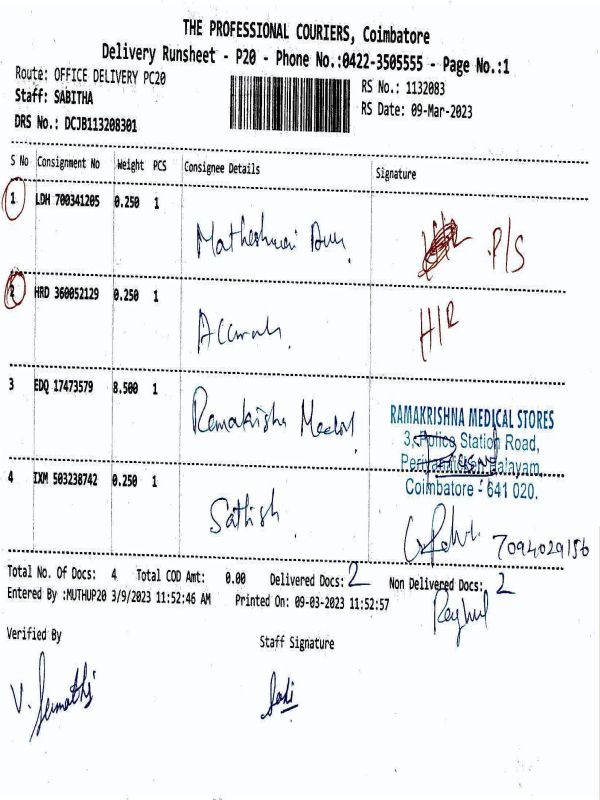 THE PROFESSIONAL COURIERS, Coimbatore
Delivery Runsheet - P20 - Phone No.:0422-3505555 - Page No.:1
Route: OFFICE DELIVERY PC20
Staff: SABITHA
DRS No.: DCJB113208301
RS No.: 1132083
RS Date: 09-Mar-2023
S No Consignment No Weight PCS Consignee Details Signature
1 LDH 700341205 0.250 1 P/S
2 HRD 360052129 0.250 1 H/R
3 EDQ 17473579 8.500 1 Ramakrishna Medical
RAMAKRISHNA MEDICAL STORES
3, Police Station Road,
Coimbatore - 641 020.
4 IXM 503238742 0.250 1 Sathish
7094029156
Total No. Of Docs: 4 Total COD Amt: 0.00 Delivered Docs: 2 Non Delivered Docs: 2
Entered By :MUTHUP20 3/9/2023 11:52:46 AM Printed On: 09-03-2023 11:52:57
Verified By Staff Signature
V. Sumathi